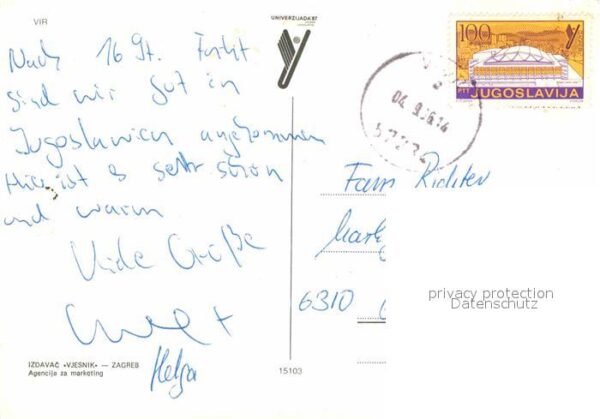 VIR
UNIVERZIJADA '87
Nach 16 St. Fahrt
sind wir gut in
Jugoslawien angekommen
Hier ist es sehr schön
und warm
Viele Grüße
Helga
IZDAVAČ »VJESNIK« — ZAGREB
Agencija za marketing
15103
100
PTT JUGOSLAVIJA
04.9.86.14
Fam. Richter
6310
privacy protection
Datenschutz